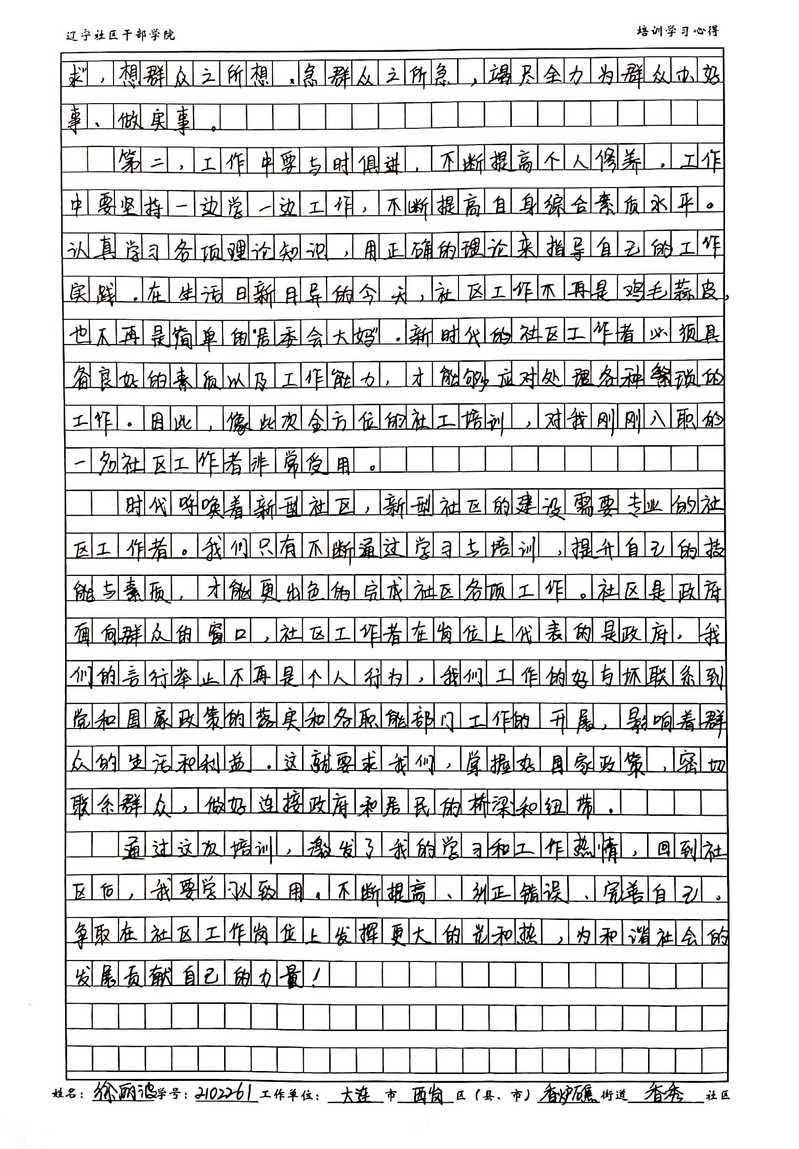 辽宁社区干部学院
培训学习心得
求，想群众之所想。急群众之所急，竭尽全力为群众办好
事、做实事。
第二，工作中要与时俱进，不断提高个人修养。工作
中要坚持一边学一边工作，不断提高自身综合素质水平。
认真学习各项理论知识，用正确的理论来指导自己的工作
实践。在生活日新月异的今天，社区工作不再是鸡毛蒜皮，
也不再是简单的"居委会大妈"。新时代的社区工作者必须具
备良好的素质以及工作能力，才能够应对处理各种繁琐的
工作。因此，像此次全方位的社工培训，对我刚刚入职的
一名社区工作者非常受用。
时代呼唤着新型社区，新型社区的建设需要专业的社
区工作者。我们只有不断通过学习与培训，提升自己的技
能与素质，才能更出色的完成社区各项工作。社区是政府
面向群众的窗口，社区工作者在岗位上代表的是政府，我
们的言行举止不再是个人行为，我们工作的好与坏联系到
党和国家政策的落实和各职能部门工作的开展，影响着群
众的生活和利益。这就要求我们，掌握好国家政策，密切
联系群众，做好连接政府和居民的桥梁和纽带。
通过这次培训，激发了我的学习和工作热情，回到社
区后，我要学以致用。不断提高、纠正错误、完善自己。
争取在社区工作岗位上发挥更大的光和热，为和谐社会的
发展贡献自己的力量！
姓名：徐丽波学号：2102261工作单位：大连市西岗区（县、市）香炉礁街道香秀社区